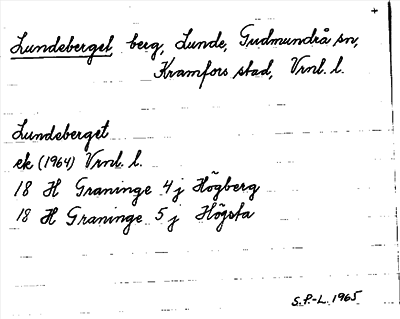 +
Lundeberget berg, Lunde, Gudmundrå sn,
Kramfors stad, Vrnl. l.
Lundeberget
ek (1964) Vrnl. l.
18 H Graninge 4 j Högberg
18 H Graninge 5 j Högsta
S.P.-L. 1965